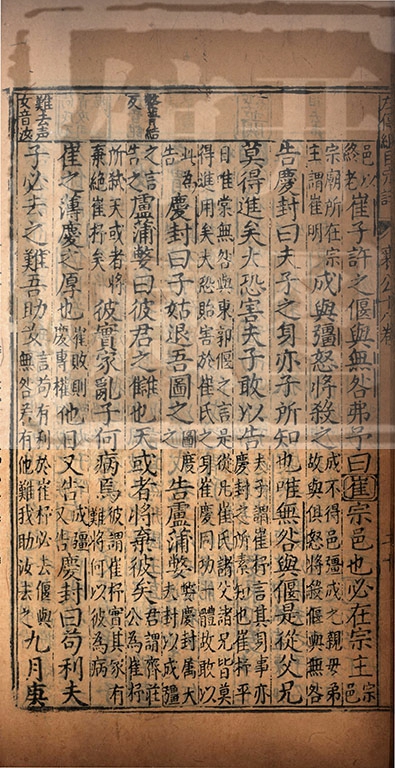 邑以終老崔子許之偃與無咎弗予曰崔宗邑也必在宗主宗邑
宗廟所在宗主謂崔明成與彊怒將殺之成不得邑彊成之親母弟故與俱怒將殺偃與無咎
告慶封曰夫子之身亦子所知也唯無咎與偃是從父兄
莫得進矣大恐害夫子敢以告夫子謂崔杼言其身事亦慶封之所素知也崔杼平
日唯棠無咎與東郭偃之言是從凡崔氏諸父諸兄皆莫得進用矣大恐貽害於崔氏之身崔慶同功一體故敢以
此為告慶封曰子姑退吾圖之圖度告盧蒲嫳嫳慶封屬大夫封以成彊
嫳普結反
之言告之盧蒲嫳曰彼君之讎也天或者將棄彼矣君謂齊莊公為崔杼
所弒天或者將棄絕崔杼矣彼實家亂子何病焉彼謂崔杼實其家有難將何以彼為病
崔之薄慶之原也崔敗則慶專權他日又告成彊又告慶封曰苟利夫
難去声女音汝
子必去之難吾助女言苟有利於崔杼必去偃與無咎若有他難我助汝去之九月庚